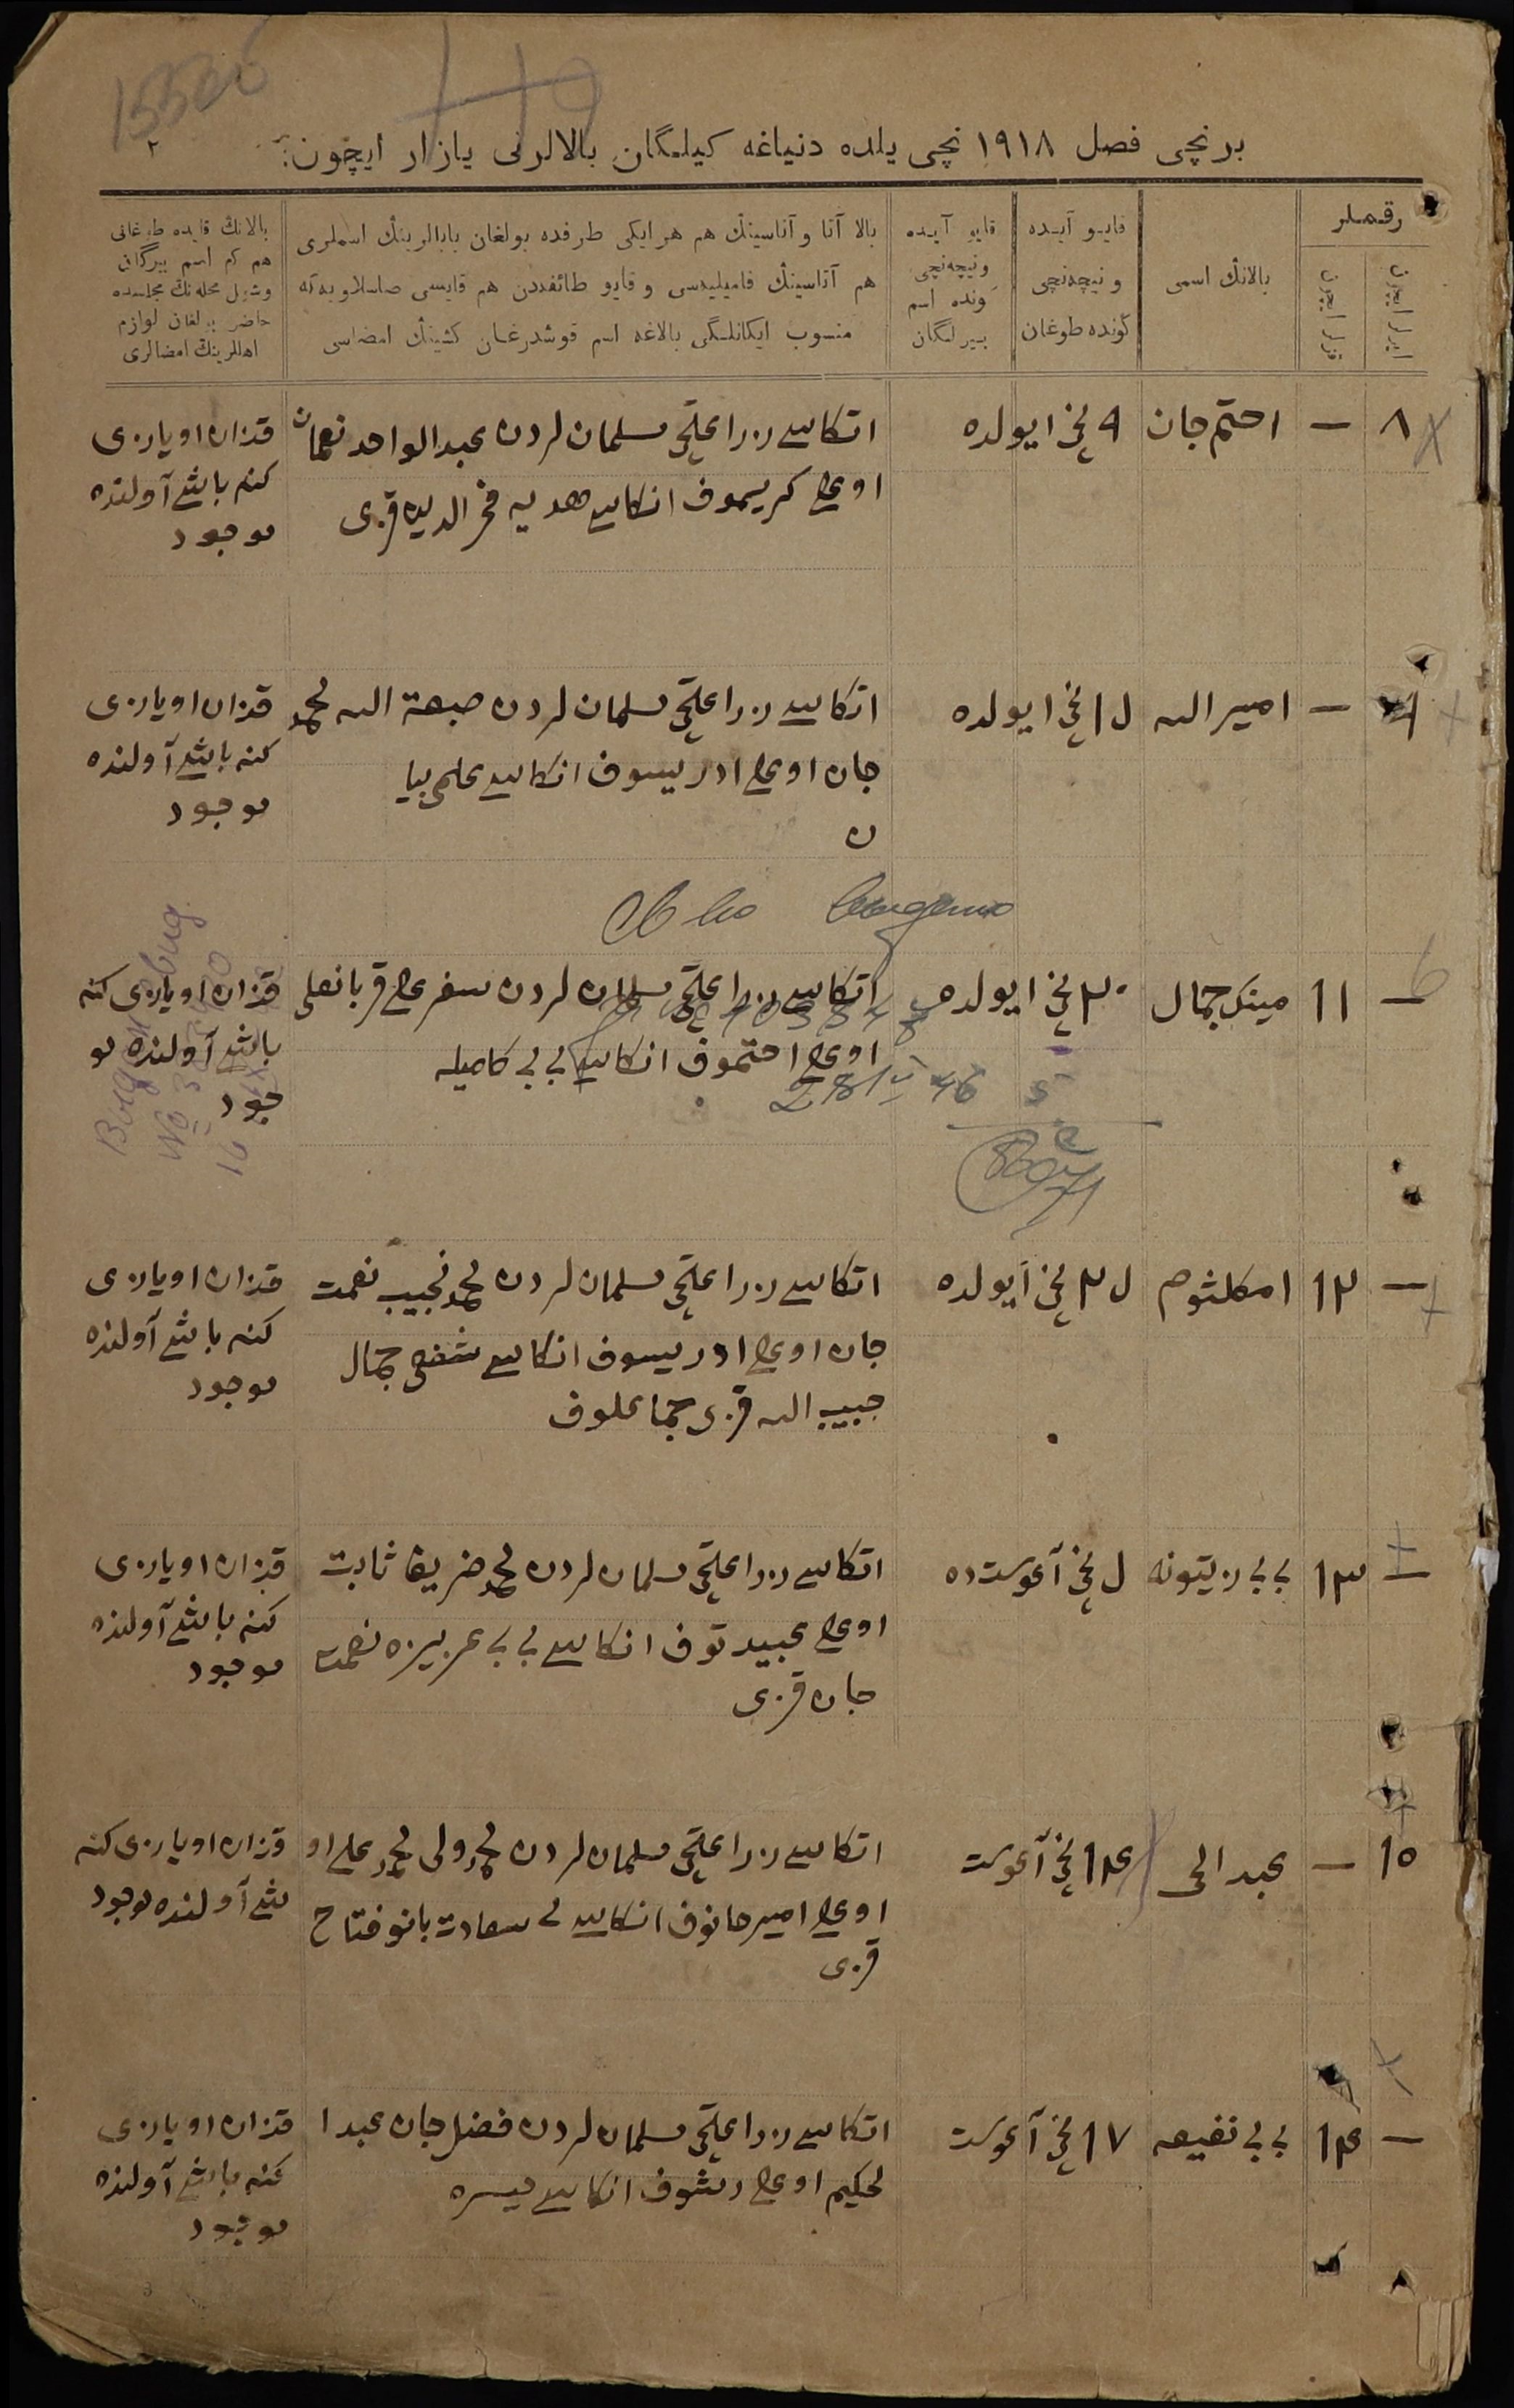 15506
برنچی فصل ١٩١٨ نچی یلده دنیاغه کیلگان بالالرنی یازار ایچون:
٢
رقملر
ایرلر ایچون
قزلر ایچون
بالانڭ اسمی
قایو آیده
و نیچه‌نچی
کونده طوغان
قایو آیده
و نیچه‌نچی
کونده اسم
بیرلگان
بالا آتا و آناسینڭ هم هر ایکی طرفده بولغان بابالرینڭ اسملری
هم آتاسینڭ فامیلیه‌سی و قایو طائفه‌دن هم قایسی صاسلاویه‌که
منسوب ایکانلگی بالاغه اسم قوشدرغان کشینڭ امضاسی
بالانڭ قایده طوغانی
هم کم اسم بیرگان
وشول محله‌نڭ مجلسده
حاضر بولغان لوازم
اهللرینڭ امضالری
٨ — احتم جان ٩ نچی ایولده
اتکاسی زراعتچی مسلمان لردن عبدالواحد نعمان
اوغلی کریموف انکاسی هدیه فخرالدین قزی
قزان اویازی
کنه باشی آولنده
موجود
— امیر الله ١٥ نچی ایولده
اتکاسی زراعتچی مسلمان لردن صبغة الله محمد
جان اوغلی ادریسوف انکاسی علمی بیا
ن
قزان اویازی
کنه باشی آولنده
موجود
— ١١ مینک جمال ٢٠ نچی ایولده
اتکاسی زراعتچی مسلمان لردن سفرعلی قربانعلی
اوغلی احتموف انکاسی بی بی کامیله
قزان اویازی کنه
باشی آولنده مو
جود
— ١٢ امکلثوم ٢٥ نچی ایولده
اتکاسی زراعتچی مسلمان لردن محمد نجیب نعمت
جان اوغلی ادریسوف انکاسی شفعی جمال
حبیب الله قزی جماعلوف
قزان اویازی
کنه باشی آولنده
موجود
— ١٣ بی بی زیتونه ٥ نچی آغوستده
اتکاسی زراعتچی مسلمان لردن محمد ضریف ثابت
اوغلی عبیدتوف انکاسی بی بی عزیزه نعمت
جان قزی
قزان اویازی
کنه باشی آولنده
موجود
١٥ — عبدالحی ١٤ نچی آغوست
اتکاسی زراعتچی مسلمان لردن محمد ولی محمد علی او
اوغلی امیرحانوف انکاسی سعادت بانو فتاح
قزی
قزان اویازی کنه
شی آولنده موجود
— ١٤ بی بی نفیعه ١٧ نچی آغوست
اتکاسی زراعتچی مسلمان لردن فضل جان عبدا
لحکیم اوغلی رشوف انکاسی میسره
قزان اویازی
کنه باشی آولنده
موجود